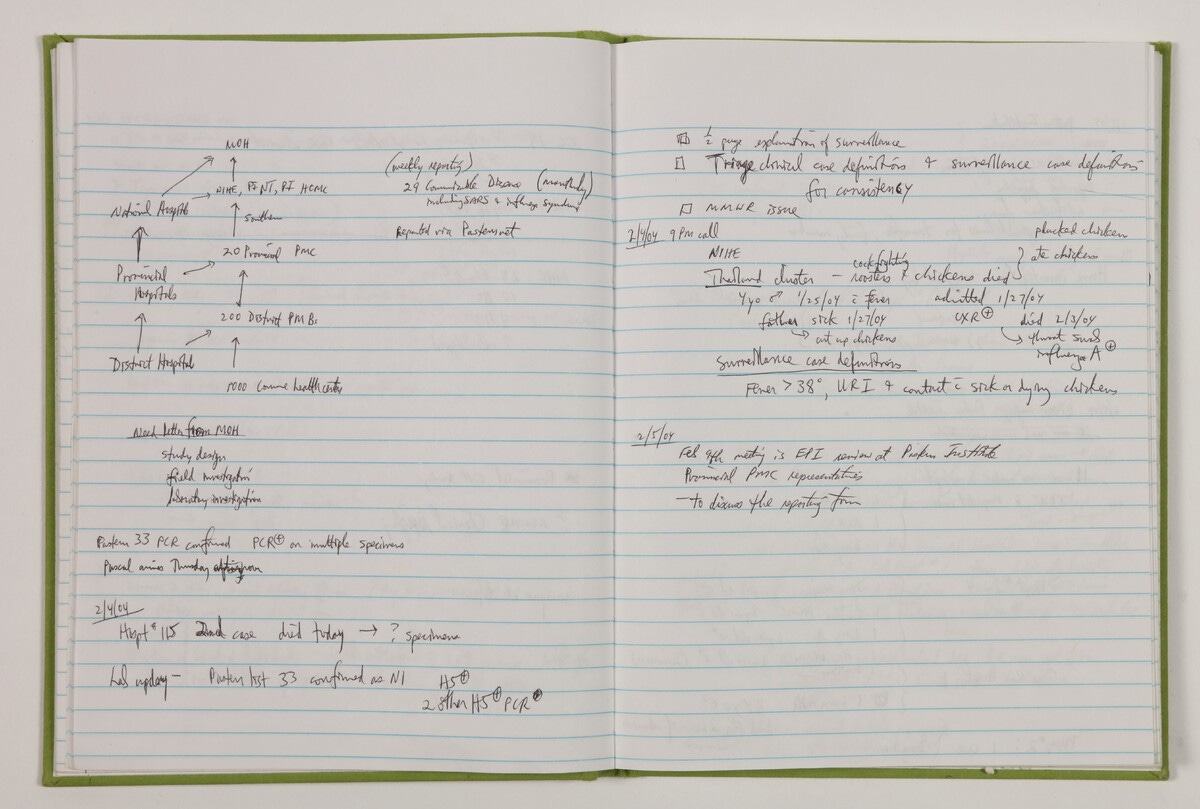 MOH
NIHE, PI NT, PI HCMC
National Hospitals
southern
20 Provincial PMC
Provincial
Hospitals
200 District PMBs
District Hospitals
1000 Commune health centers
(weekly reporting)
29 Communicable Disease (monthly)
including SARS & influenza syndrome
Reported via Pasteur net
Need letter from MOH
study design
field investigation
laboratory investigation
Pasteur 33 PCR confirmed PCR⊕ on multiple specimens
Pascal arrives Thursday afternoon
2/4/04
Hospt # 115 2nd case died today → ? specimens
Lab update - Pasteur last 33 confirmed as N1 H5⊕
2 other H5⊕ PCR⊕
□ ½ page explanation of surveillance
□ Triage clinical case definitions & surveillance case definitions
for consistency
□ MMWR issue
2/4/04 9 PM call
NIHE
plucked chicken
ate chickens
cockfighting
Thailand cluster - roosters & chickens died
4 yo ♂ 1/25/04 c̄ fever admitted 1/27/04
father sick 1/27/04 CXR⊕ died 2/3/04
→ cut up chickens
→ throat swab
influenza A⊕
Surveillance case definitions
Fever > 38°, URI & contact c̄ sick or dying chickens
2/5/04
Feb 9th meeting is EPI review at Pasteur Institute
Provincial PMC representatives
- to discuss the reporting form